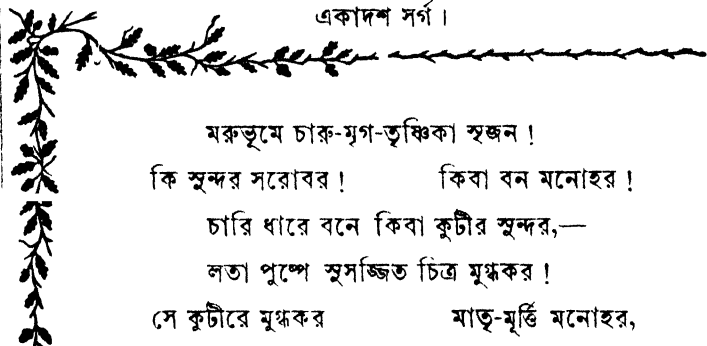 একাদশ সর্গ।
মরুভূমে চারু-মৃগ-তৃষ্ণিকা সৃজন!
কি সুন্দর সরোবর! কিবা বন মনোহর!
চারি ধারে বনে কিবা কুটীর সুন্দর,—
লতা পুষ্পে সুসজ্জিত চিত্র মুগ্ধকর!
সে কুটীরে মুগ্ধকর মাতৃ-মূর্ত্তি মনোহর,